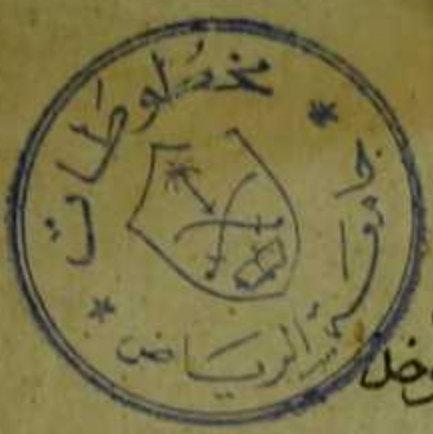 مخطوطات
جامعة الرياض
وخذ